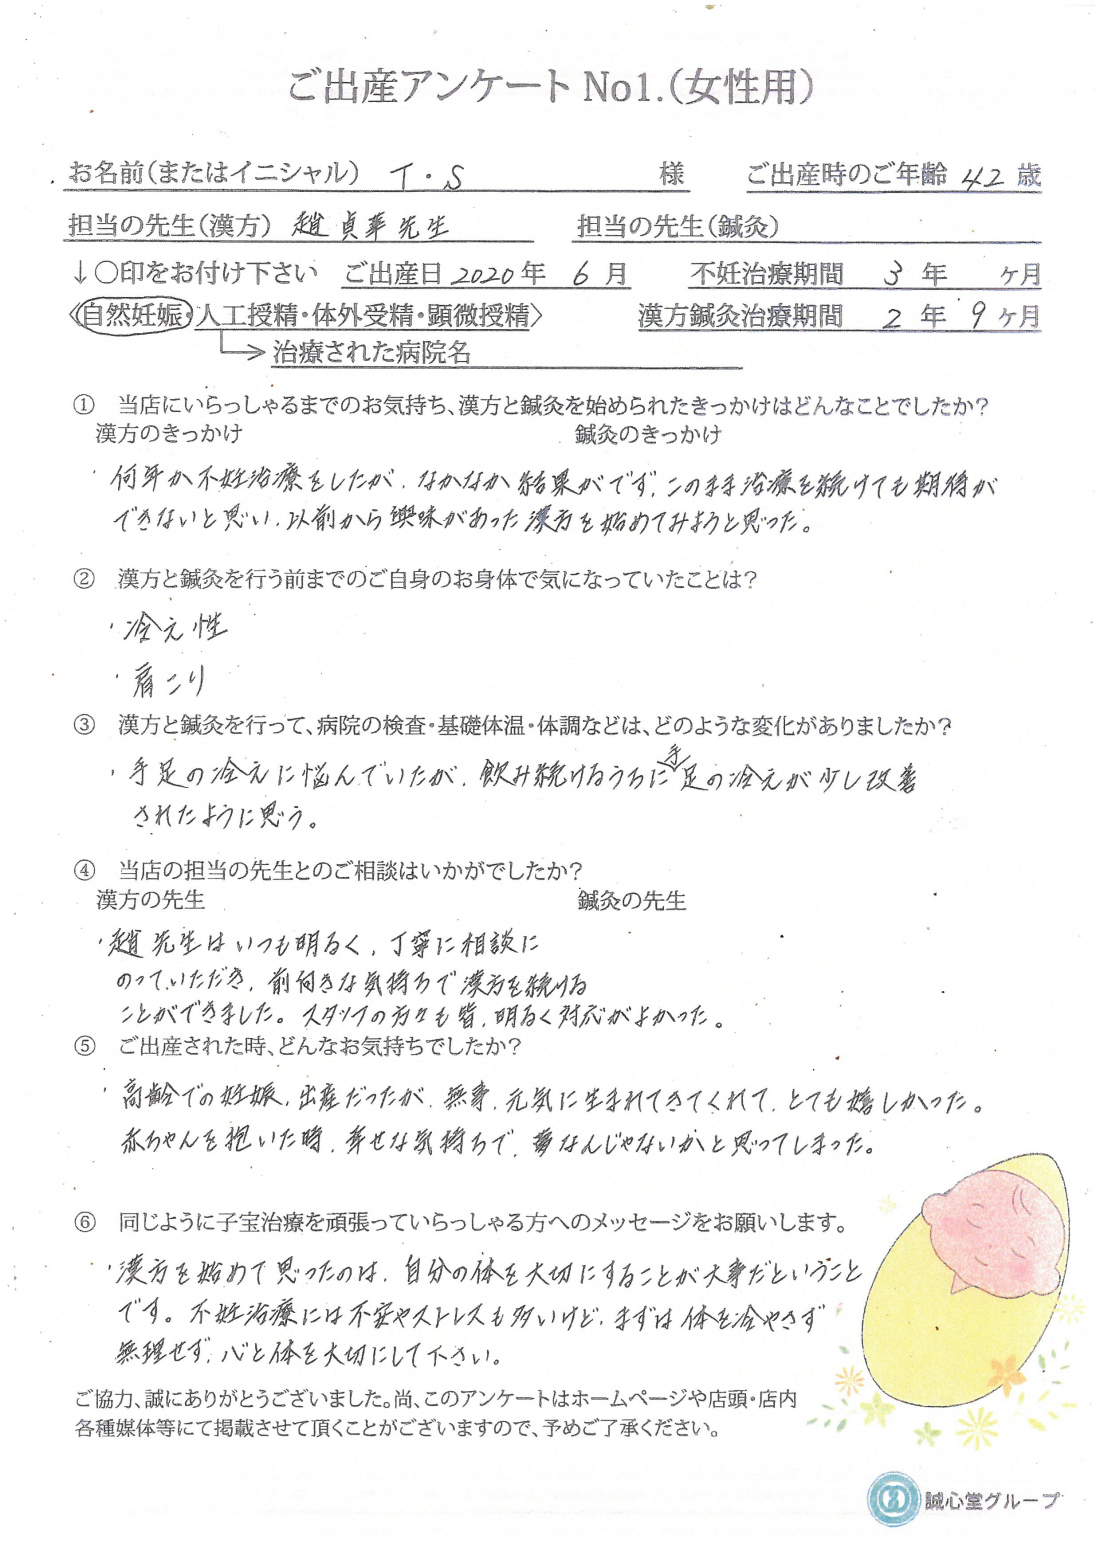 ご出産アンケート No1.(女性用)
お名前(またはイニシャル) T・S 様 ご出産時のご年齢 42 歳
担当の先生(漢方) 趙 貞華 先生 担当の先生(鍼灸)
↓〇印をお付け下さい ご出産日 2020 年 6 月 不妊治療期間 3 年 ヶ月
〈自然妊娠・人工授精・体外受精・顕微授精〉 漢方鍼灸治療期間 2 年 9 ヶ月
治療された病院名
① 当店にいらっしゃるまでのお気持ち、漢方と鍼灸を始められたきっかけはどんなことでしたか?
漢方のきっかけ 鍼灸のきっかけ
・何年か不妊治療をしたが、なかなか結果がです、このまま治療を続けても期待が
できないと思い、以前から興味があった漢方を始めてみようと思った。
② 漢方と鍼灸を行う前までのご自身のお身体で気になっていたことは?
・冷え性
・肩こり
③ 漢方と鍼灸を行って、病院の検査・基礎体温・体調などは、どのような変化がありましたか?
・手足の冷えに悩んでいたが、飲み続けるうちに手足の冷えが少し改善
されたように思う。
④ 当店の担当の先生とのご相談はいかがでしたか?
漢方の先生 鍼灸の先生
・趙先生はいつも明るく、丁寧に相談に
のっていただき、前向きな気持ちで漢方を続ける
ことができました。スタッフの方々も皆、明るく対応がよかった。
⑤ ご出産された時、どんなお気持ちでしたか?
・高齢での妊娠、出産だったが、無事、元気に生まれてきてくれて、とても嬉しかった。
赤ちゃんを抱いた時、幸せな気持ちで、夢なんじゃないかと思ってしまった。
⑥ 同じように子宝治療を頑張っていらっしゃる方へのメッセージをお願いします。
・漢方を始めて思ったのは、自分の体を大切にすることが大事だということ
です。不妊治療には不安やストレスも多いけど、まずは体を冷やさず
無理せず、心と体を大切にして下さい。
ご協力、誠にありがとうございました。尚、このアンケートはホームページや店頭・店内
各種媒体等にて掲載させて頂くことがございますので、予めご了承ください。
誠心堂グループ